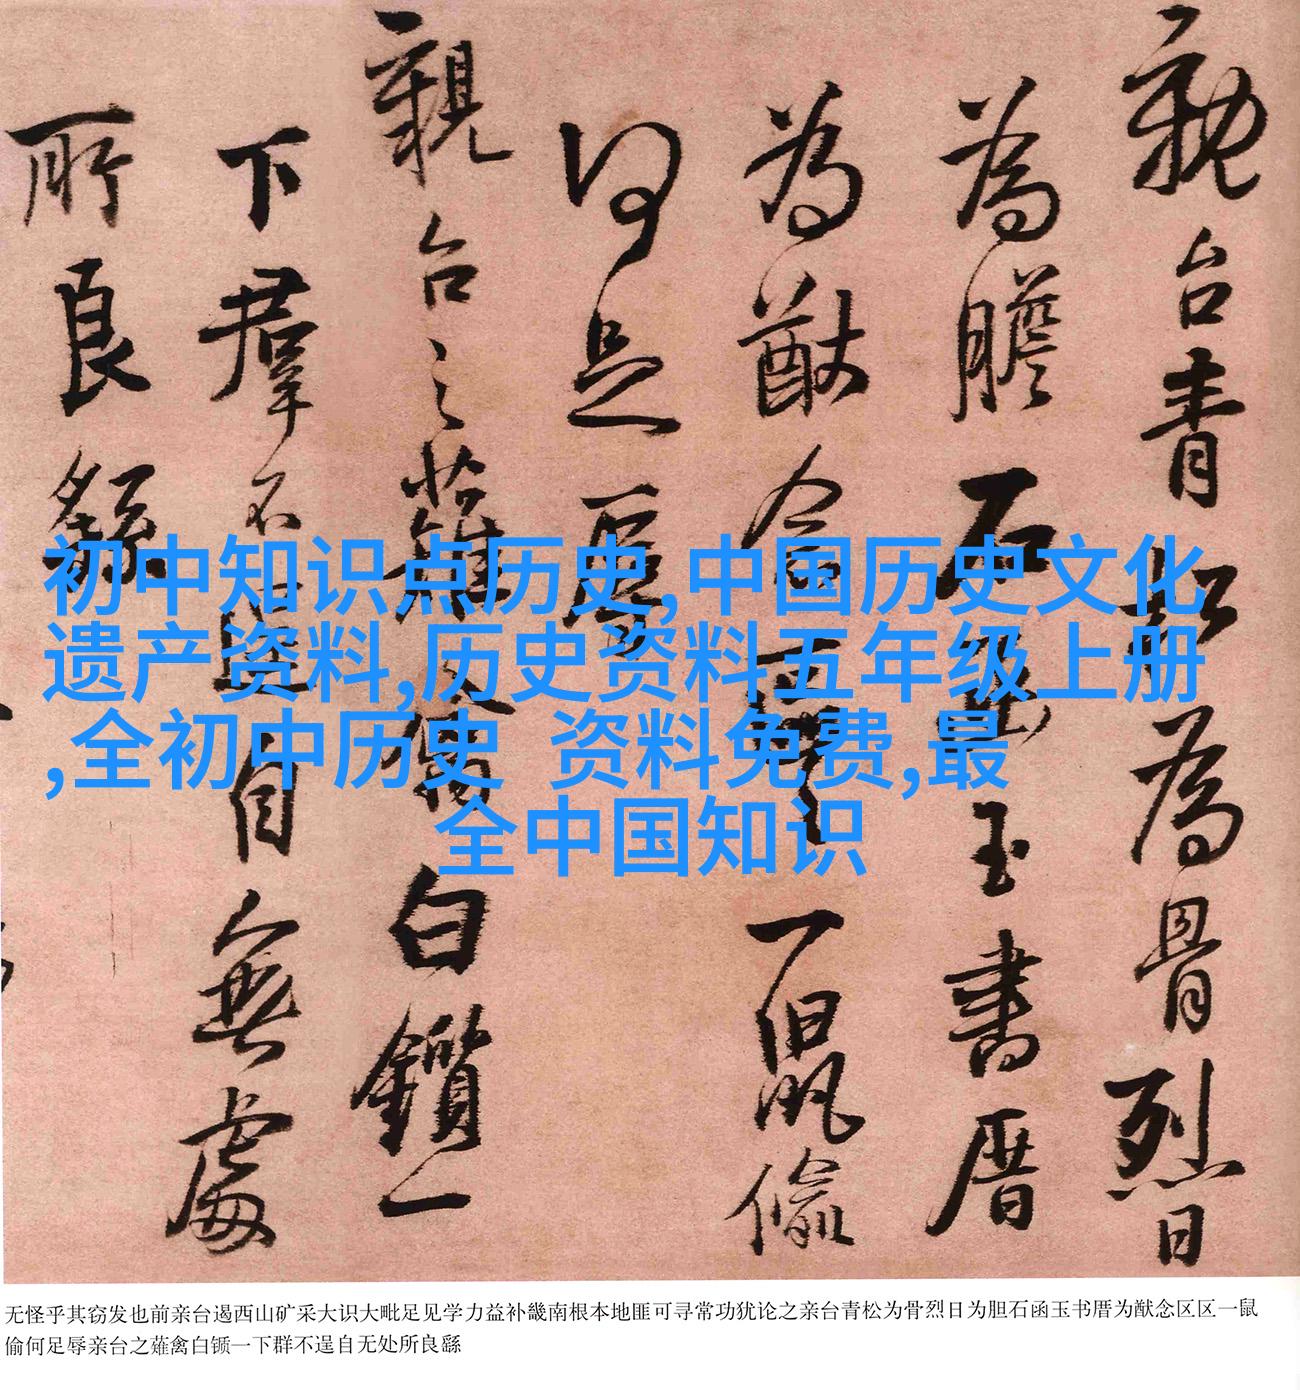 親台青松為骨烈日
為膽石函玉書厝
為猷念區區一鼠偷
何足辱
親台之薙禽白鑕一
下羣不逞自無處
所良繇
初中知识点历史,中国历史文化
遗产资料,历史资料五年级上册
,全初中历史 资料免费,最
全中国知识
无怪乎其窃发也前亲台遏西山矿采大识大毗足见学力益补畿南根本地匪可寻常功犹论之亲台青松为骨烈日为胆石函玉书厝为猷念区区一鼠
偷何足辱亲台之薙禽白锧一下群不逞自无处所良繇